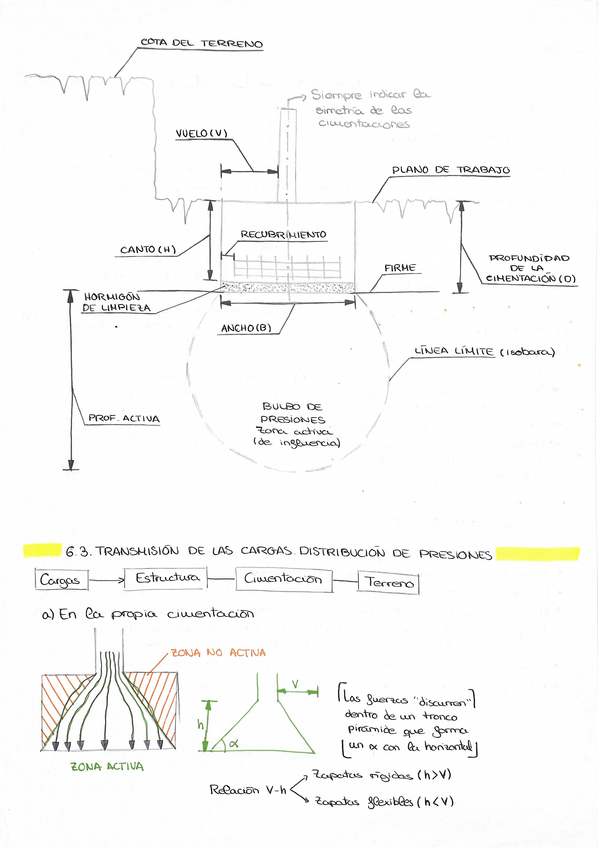 COTA DEL TERRENO
Siempre indicar la
simetría de las
cimentaciones
VUELO (V)
PLANO DE TRABAJO
RECUBRIMIENTO
CANTO (H)
FIRME
PROFUNDIDAD
DE LA
CIMENTACIÓN (D)
HORMIGÓN
DE LIMPIEZA
ANCHO (B)
LÍNEA LÍMITE (isobara)
PROF. ACTIVA
BULBO DE
PRESIONES
Zona activa
(de influencia)
6.3. TRANSMISIÓN DE LAS CARGAS. DISTRIBUCIÓN DE PRESIONES
Cargas
Estructura
Cimentación
Terreno
a) En la propia cimentación
ZONA NO ACTIVA
ZONA ACTIVA
V
h
α
[Las fuerzas "discurren"
dentro de un tronco
pirámide que forma
un α con la horizontal]
Relación V-h
Zapatas rígidas (h>V)
Zapatas flexibles (h<V)